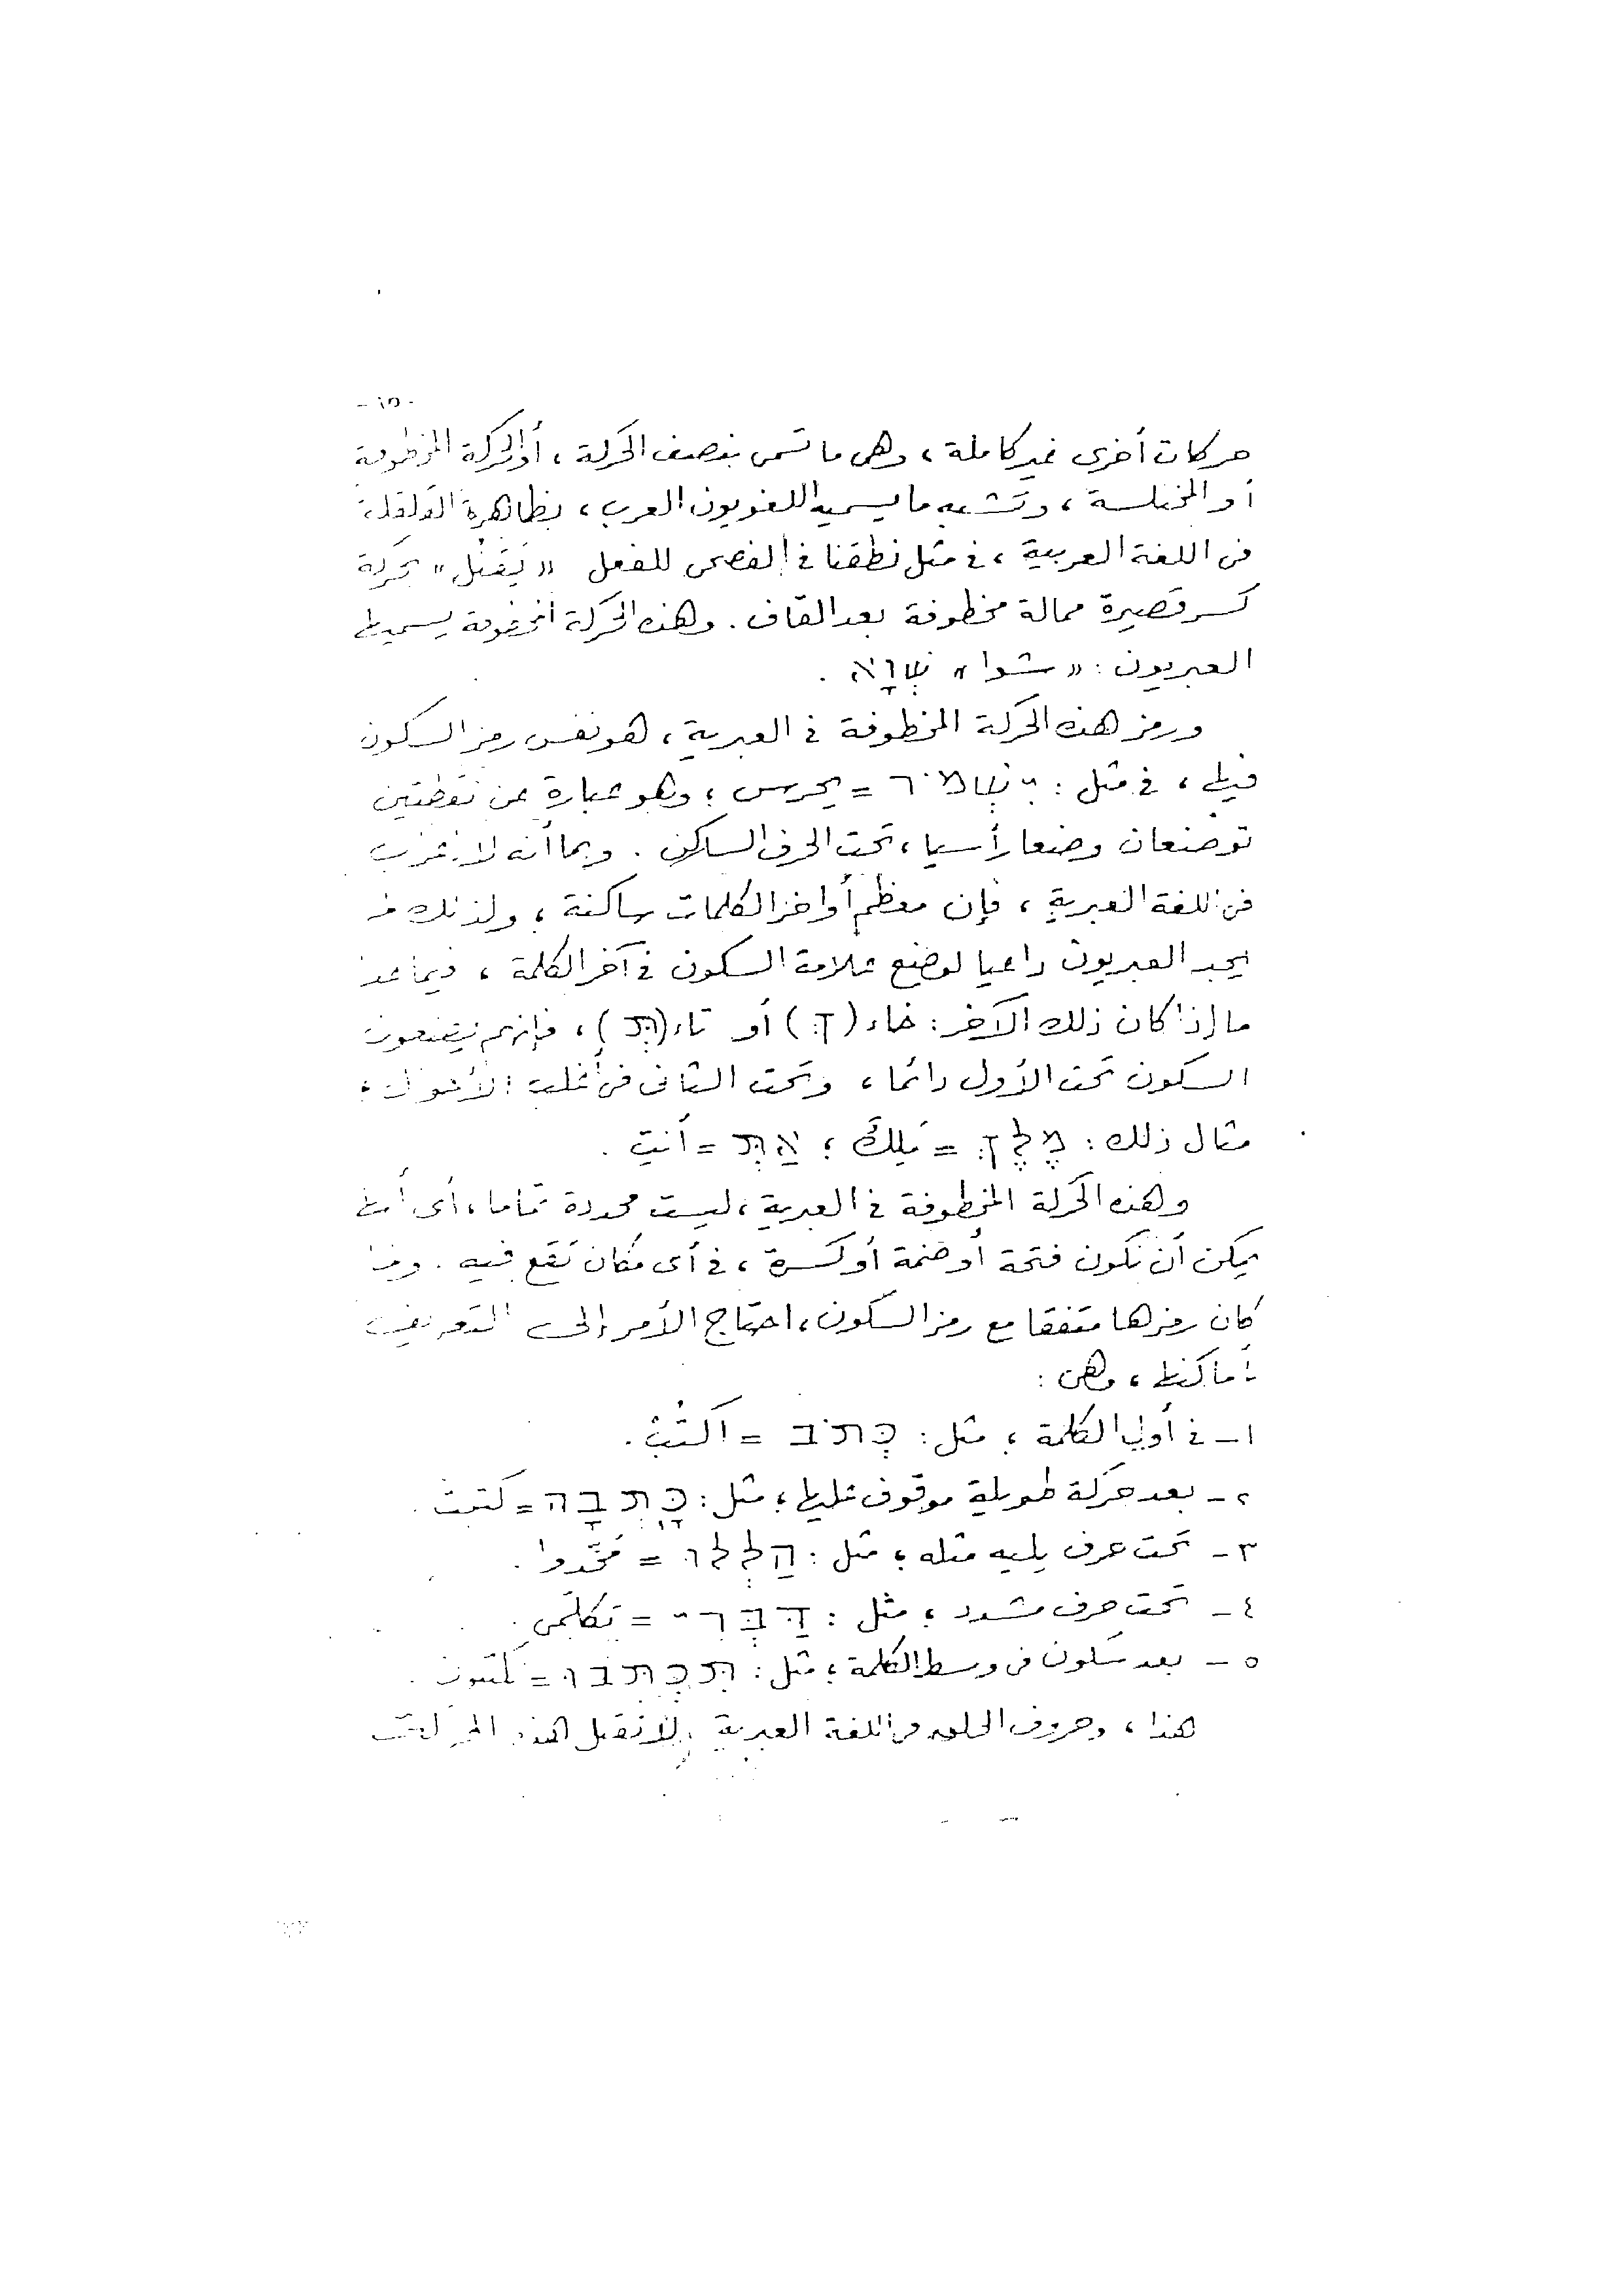 - ١٥ -
حركات أخرى غير كاملة ، وهى ما تسمى بنصف الحركة ، أو الحركة المخطوفة
أو المختلسة ، وتشبه ما يسميه اللغويون العرب ، بظاهرة القلقلة
فى اللغة العربية ، فى مثل نطقنا فى الفصحى للفعل « يَقْتُل » بحركة
كسر قصيرة ممالة مخطوفة بعد القاف . وهذه الحركة المخطوفة يسميها
العبريون : « شوا » שְׁוָא .
ورمز هذه الحركة المخطوفة فى العبرية ، هو نفس رمز السكون
فيها ، فى مثل : יִשְׁמֹר = يحرس ؛ وهو عبارة عن نقطتين
توضعان وضعا رأسيا ، تحت الحرف الساكن . وبما أنه لا إعراب
فى اللغة العبرية ، فإن معظم أواخر الكلمات ساكنة ، ولذلك لم
يجد العبريون داعيا لوضع علامة السكون فى آخر الكلمة ، فيما عدا
ما إذا كان ذلك الآخر : خاء ( ךְ ) أو تاء ( תְּ ) ، فإنهم يضعون
السكون تحت الأول دائما ، وتحت الثانى فى أغلب الأحوال ؛
مثال ذلك : מֶלֶךְ = مَلِكٌ ؛ אַתְּ = أنتِ .
وهذه الحركة المخطوفة فى العبرية ، ليست محددة تماما ، أى أنها
يمكن أن تكون فتحة أو ضمة أو كسرة ، فى أى مكان تقع فيه . ولما
كان رمزها متفقا مع رمز السكون ، احتاج الأمر إلى التعريف
بأماكنها ، وهى :
١ – فى أول الكلمة ؛ مثل : כְּתֹב = اُكْتُبْ .
٢ – بعد حركة طويلة موقوف عليها ؛ مثل : כָּתְבָה = كتبت .
٣ – تحت حرف يليه مثله ؛ مثل : הַלְלוּ = مَجِّدوا .
٤ – تحت حرف مشدد ؛ مثل : דַּבְּרִי = تكلّمى .
٥ – بعد سكون فى وسط الكلمة ؛ مثل : תִּכְתְּבוּ = تكتبون .
هذا ، وحروف الحلق فى اللغة العبرية لا تقبل هذه الحركات